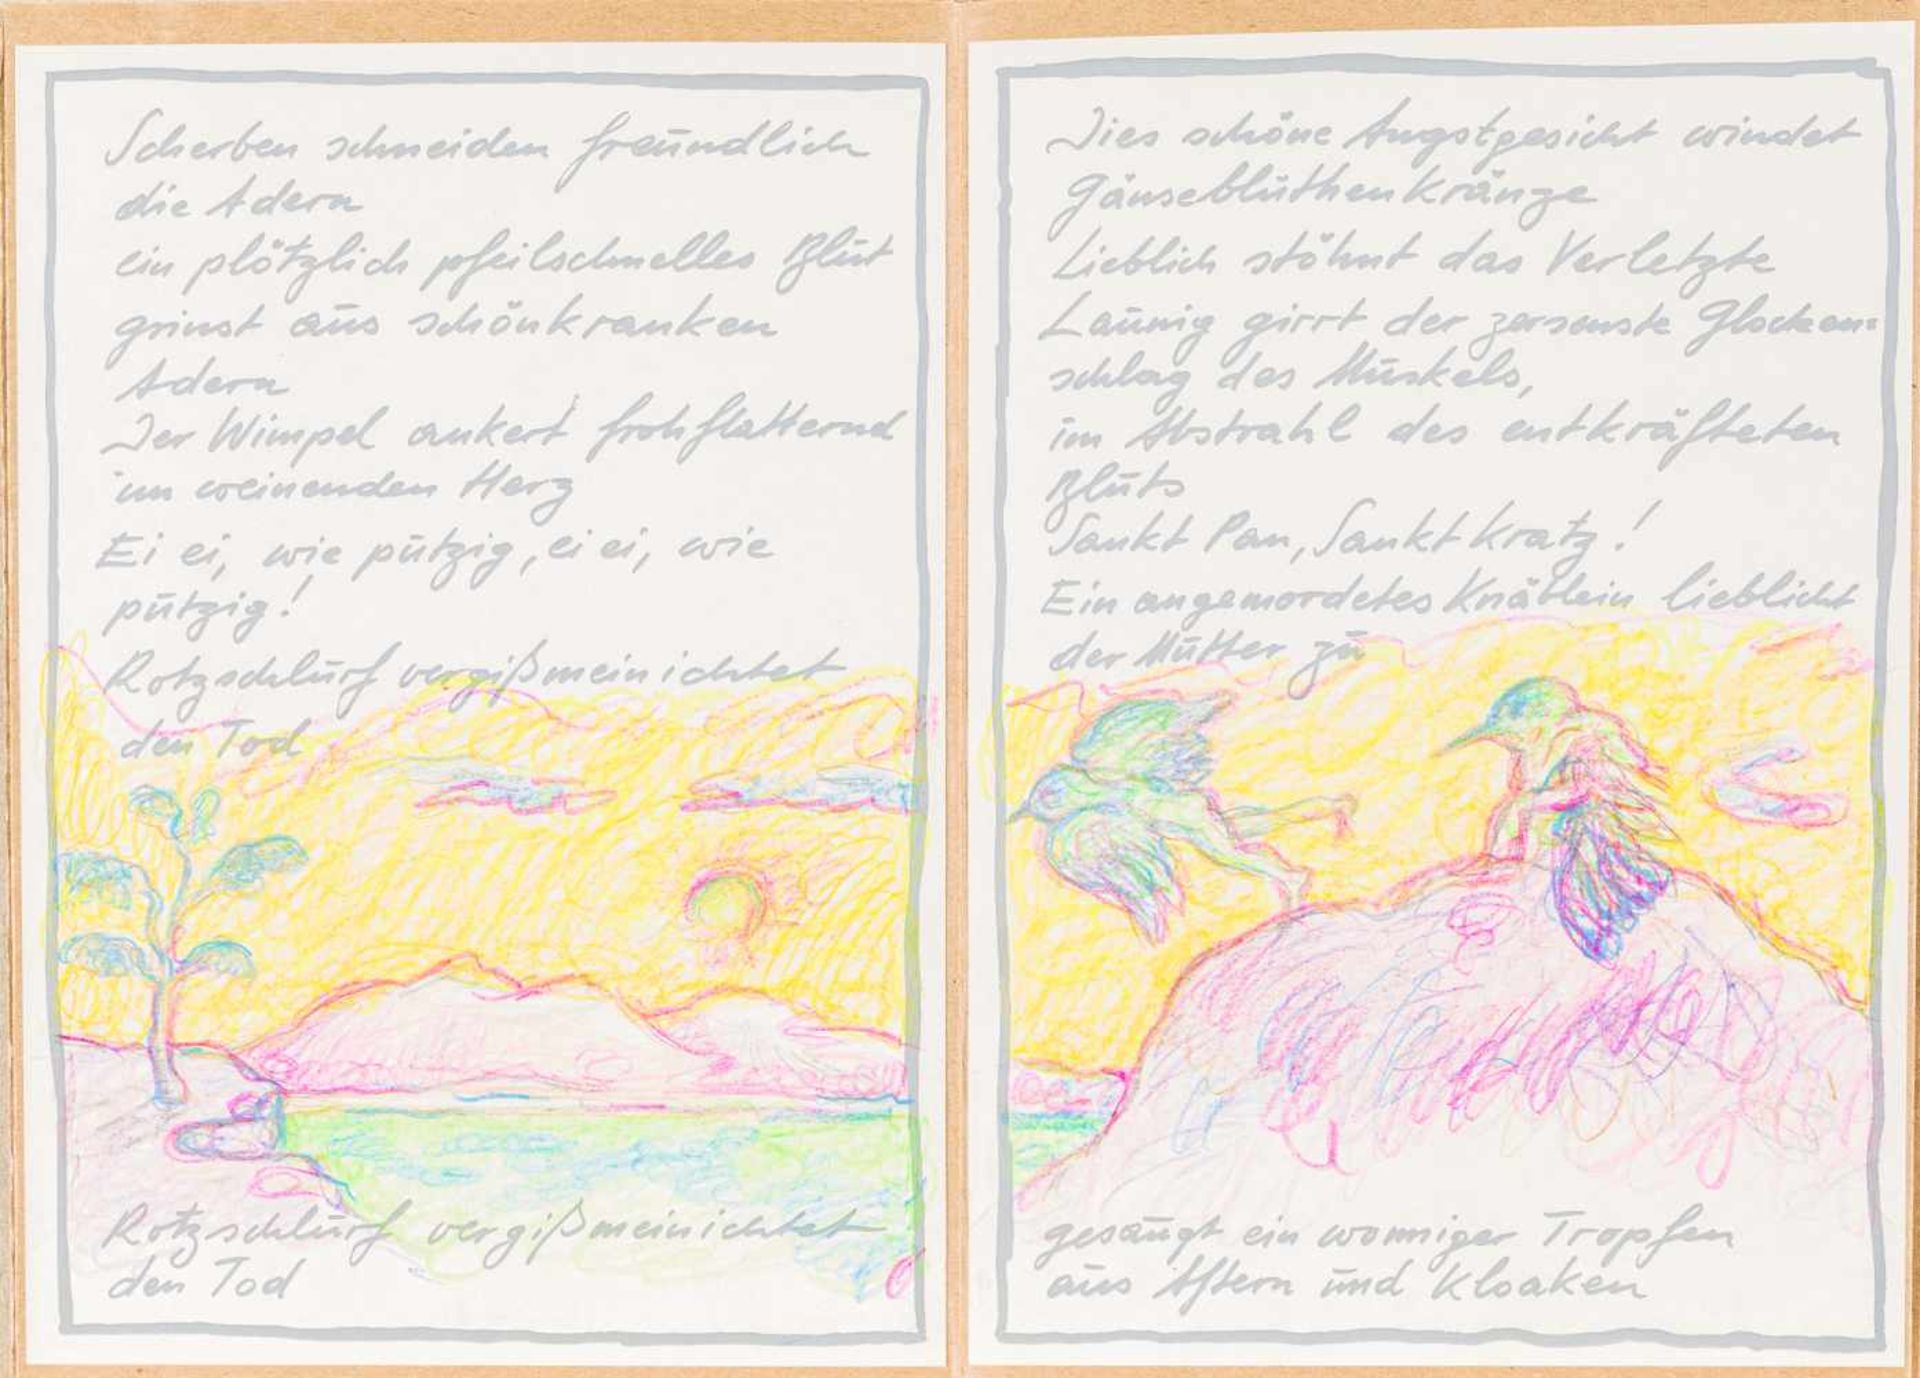 Scherben schneiden freundlich
die Adern
ein plötzlich pfeilschnelles Blut
grinst aus schönkranken
Adern
Der Wimpel ankert frohflatternd
im weinenden Herz
Ei ei, wie putzig, ei ei, wie
putzig!
Rotzschlurf vergißmeinichtet
den Tod
Rotzschlurf vergißmeinichtet
den Tod
Dies schöne Angstgesicht windet
Gänseblüthenkränze
Lieblich stöhnt das Verletzte
Launig girrt der zersauste Glocken=
schlag des Muskels,
im Abstrahl des entkräfteten
Bluts
Sankt Pan, Sankt Kratz!
Ein angemordetes Knäblein lieblicht
der Mutter zu
gesaugt ein wonniger Tropfen
aus Aftern und Kloaken